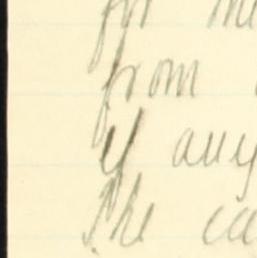 for
from
if any
The